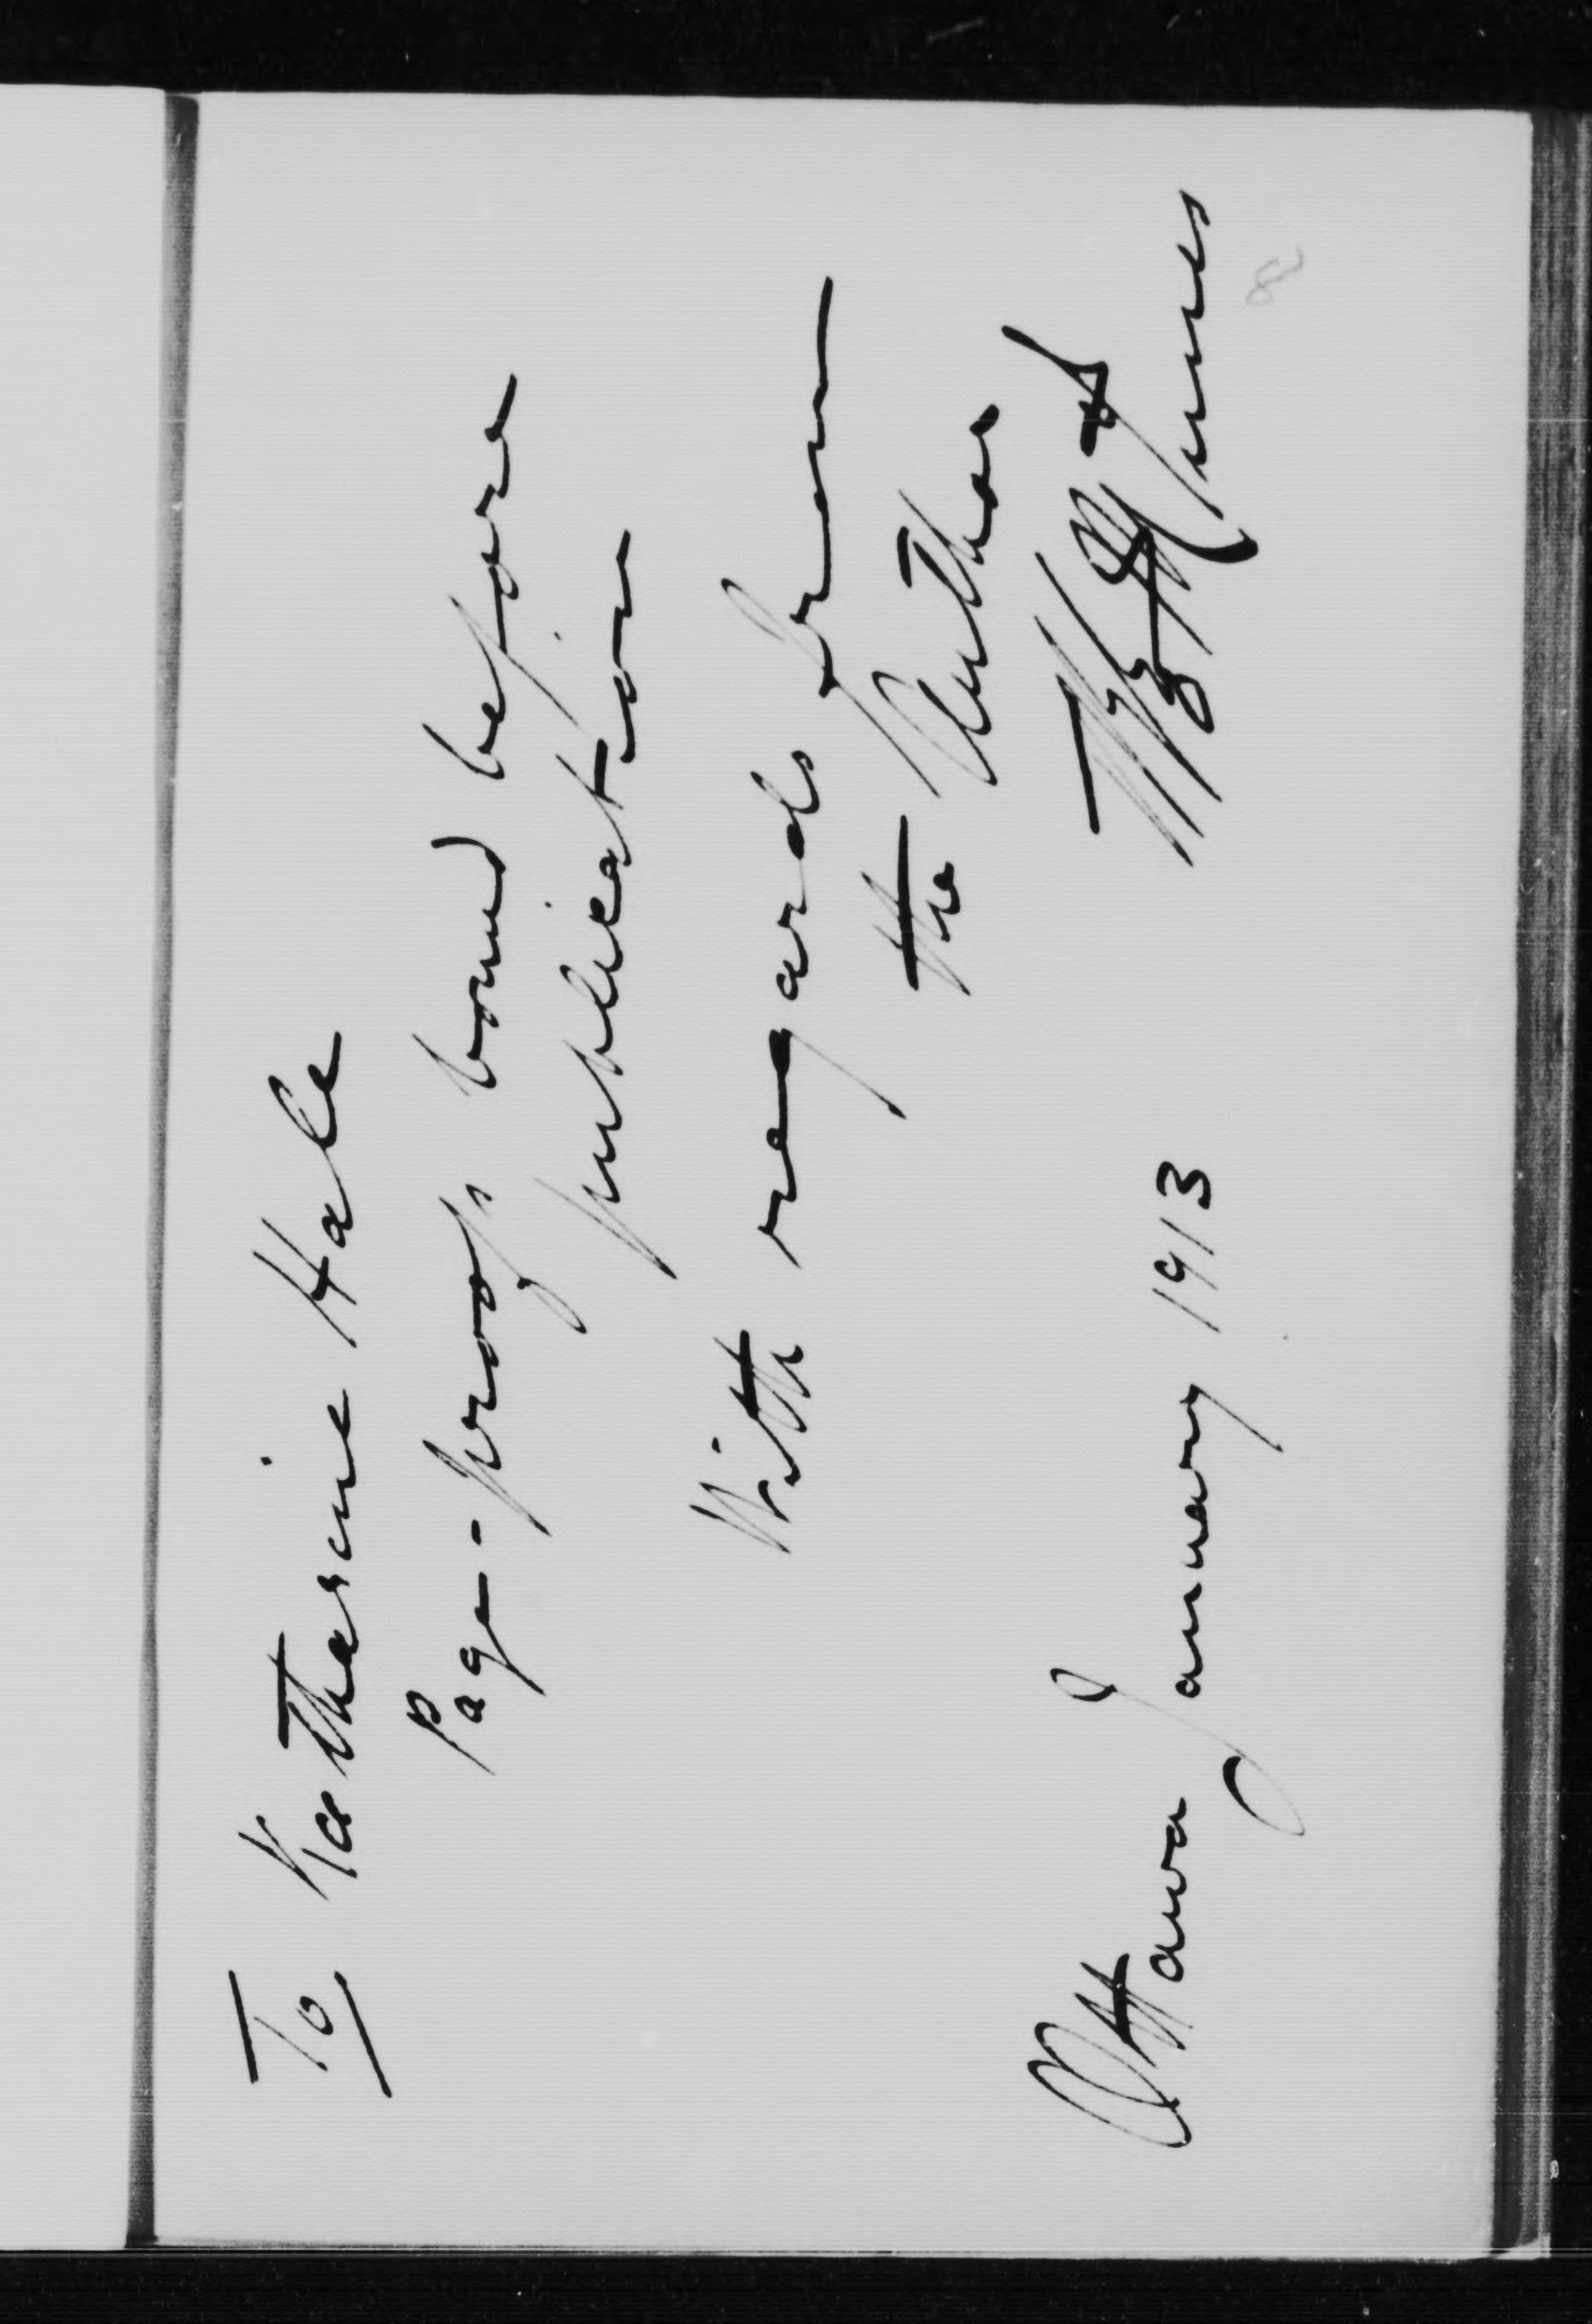 To Katharine Hale
Page-proofs bound before
publication
With regards from
the Author
Ottawa January 1913